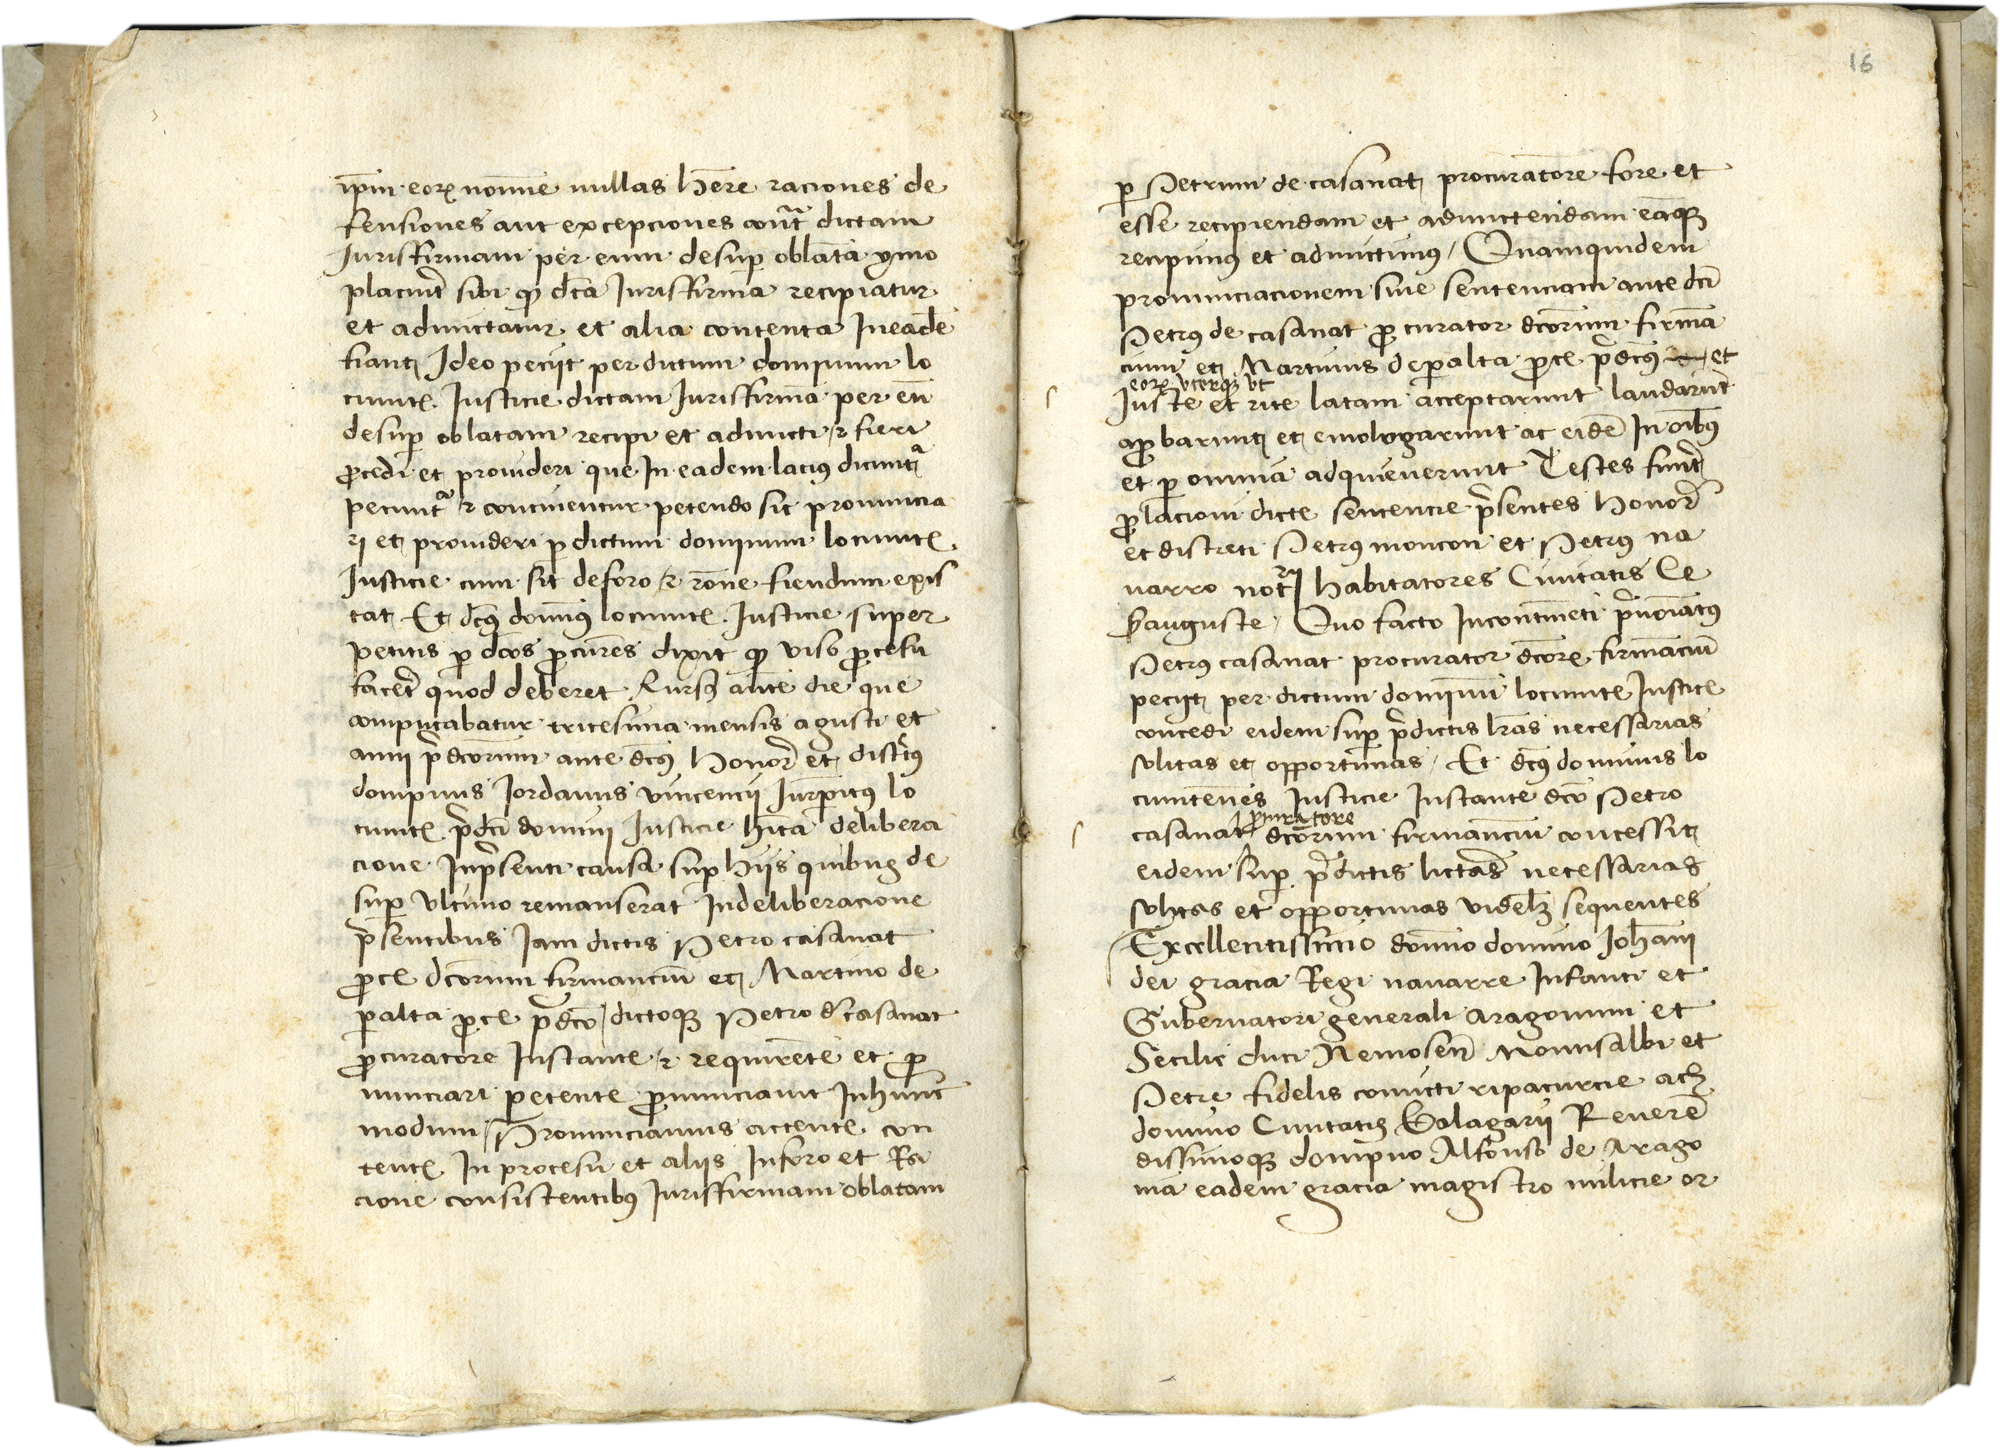 ip̄m eorꝝ nomīe nullas h̄ere raciones de
fensiones aut excepciones cont̃ dictam
Iurisfirmam per eum desuꝑ oblatā ymo
placuit̃ sibi qꝫ dc̄a Iurisfirma recipiatur
et admictatur et alia contenta In eadē
fiant Ideo peciit per dictum dompnum lo
cumteñ Iusticie dictam Iurisfirmā per eū
desuꝑ oblatam recipi et admicti ⁊ fieri
ꝓcedi et prouideri que In eadem lacius dicunt̃
petunt̃ ⁊ continentur petendo sic pronuncia
ri et prouideri ꝑ dictum dominum locumteñ
Iusticie cum sit de foro ⁊ rōne fiendum exis
tat Et dc̄s domīꝰ locumteñ Iusticie super
petitis ꝑ dc̄os ꝓcur̄es dixit qꝫ viso ꝓcesu
facer̃ quod deberet Rursꝰ autē die que
computabatur tricesima mensis agusti et
anni p̄dc̄orum ante dc̄s Honor̃ et discr̃tꝰ
dompnus Iordanus vincencii Iurꝑitꝰ lo
cumteñ p̄dc̄i domini Iusticie hīta delibera
cione Inp̄senti causa suꝑ hiis quibus de
suꝑ vltimo remanserat Indeliberacione
p̄sentibus Iam dictis Petro casanat
ꝓce dc̄orum firmanciū et Martino de
peralta ꝓce p̄dc̄o dictoqꝫ Petro de casanat
ꝓcuratore Instante ⁊ requirēte et ꝓ
nunciari petente ꝓnunciauit Inhunc
modum / Pronunciamus actente con
tentꝭ In procesu et aliis Inforo et Ra
cione consistentibꝰ Iurisfirmam oblatam
16
ꝑ Petrum de casanat procuratore fore et
esse recipiendam et admictendam eāqꝫ
recipimꝰ et admictimꝰ / Quamquidem
pronunciacionem siue sentenciam ante dc̄i
Petrꝰ de casanat ꝓcurator dc̄orum firma
cium et Martinus de peralta ꝓce p̄dc̄ꝰ et
eorꝝ vterqꝫ vt
Iuste et rite latam acceptarunt laudarūt
aꝓbarunt et emologarunt ac eidē In oībꝰ
et ꝑ omnia adquieuerunt Testes fuer̃t
ꝓlacioni dicte sentencie p̄sentes Honor̃
et discreti Petrꝰ moncon et Petrꝰ na
uarro not̃rii habitatores Ciuitatis Ce
sarauguste / Quo facto Incontineti p̄noīatꝰ
Petrꝰ casanat procurator dc̄orꝝ firmanciū
peciit per dictum dominū locumteñ Iusticie
concedi eidem suꝑ p̄dictis lr̄as necessarias
solitas et opportunas / Et dc̄s dominus lo
cumtenēs Iusticie Instante dc̄o Petro
casanat ꝓcuratore dc̄orum firmanciū concessit
eidem suꝑ p̄dictis licter̃as necessarias
solitas et opportunas videlꝫ sequentes
Excellentissimo domīo domino Ioh̄ani
dei gracia Regi nauarre Infanti et
Gubernatori generali aragonum et
Secilie duci Nemosen̄ Montisalbi et
Petre fidelis comicti ripacurcie ach
domino Ciuitatis Balagarii Reuerē
dissimoqꝫ dompno Alfonso de Arago
nia eadem gracia magistro milicie or